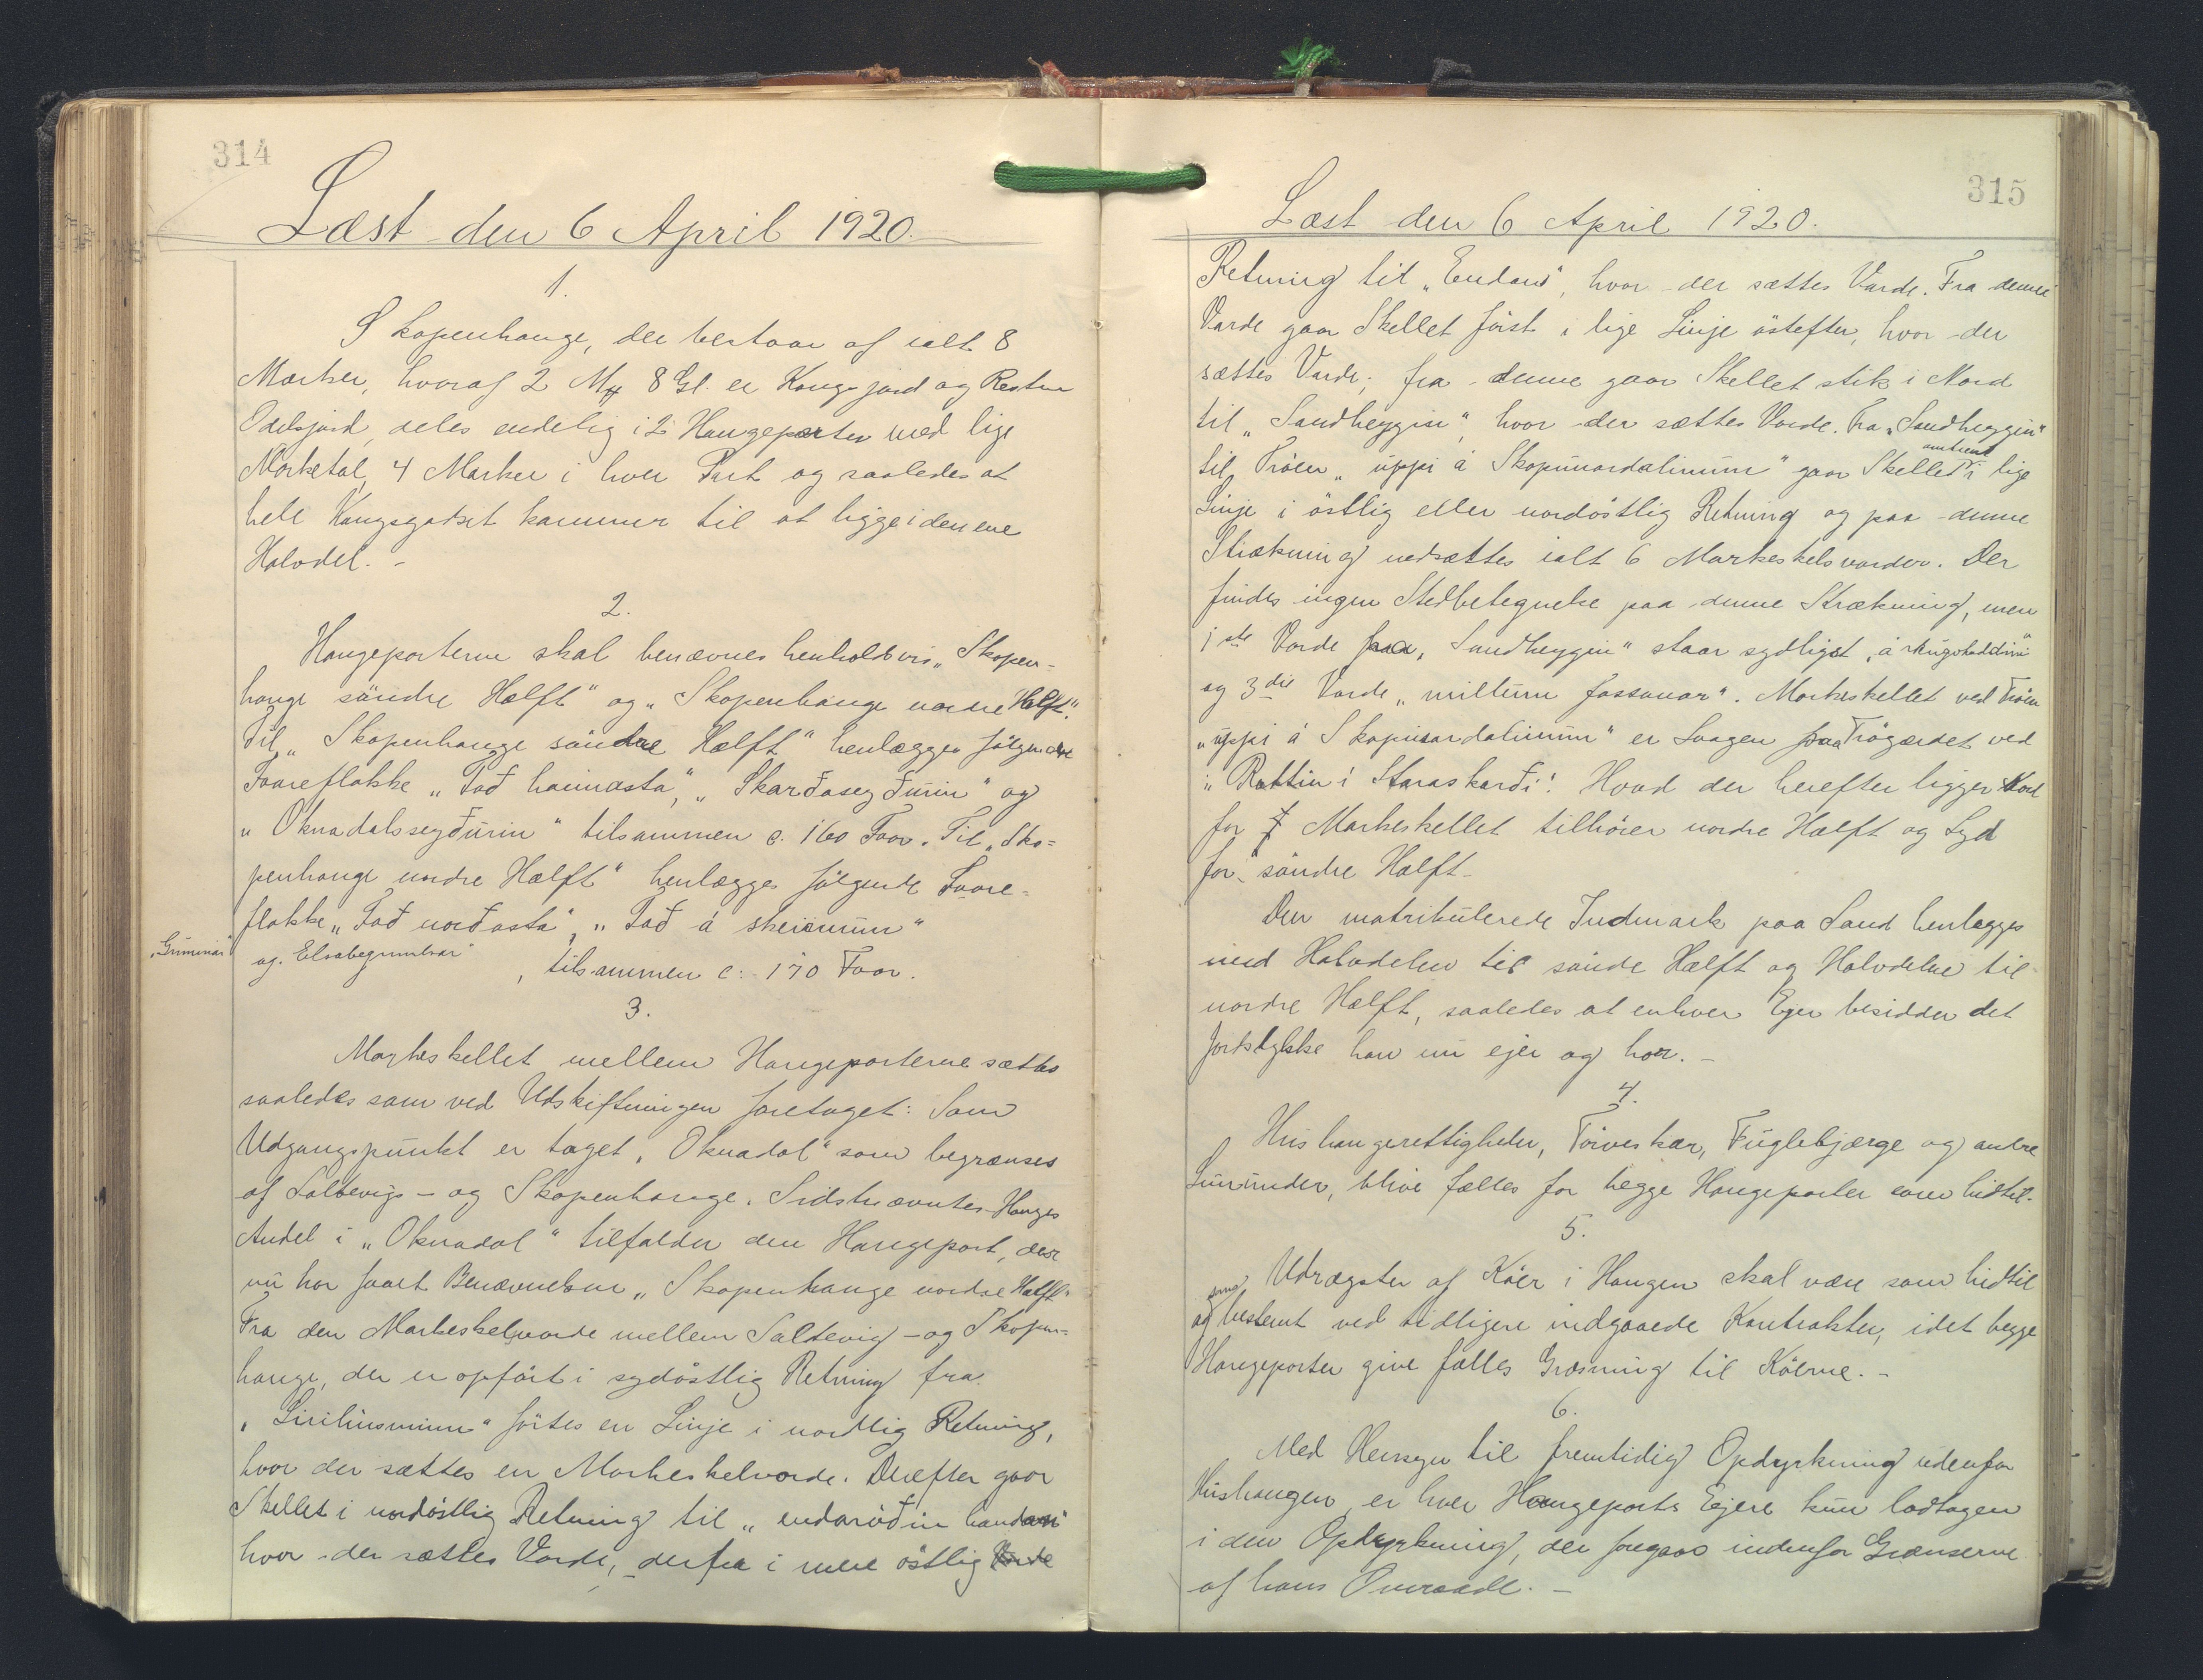 314
Læst den 6 April 1920.
1.
Skopenhauge, der bestaar af ialt 8
Marker, hvoraf 2 Mk 8 Gl. er Kongsjord og Resten
Odelsjord, deles endelig i 2 Haugeparter med lige
Marketal, 4 Marker i hver Part og saaledes at
hele Kongsgodset kommer til at ligge i den ene
Halvdel. -
2.
Haugeparterne skal benævnes henholdsvis „Skopen-
hauge söndre Hælft" og „Skopenhauge nordre Hælft".
Til „Skopenhauge söndre Hælft" henlægges fölgende
Faareflokke „Tað haimasta", „Skarðaseyðurin" og
„Oknadalsseyðurin" tilsammen c. 160 Faar. Til „Sko=
penhauge nordre Hælft" henlægges fölgende Faare=
flokke „Tað norðasta", „Tað á skeiinum"
„Gruminar" og Elsabegrunnar"
, tilsammen c. 170 Faar.
3.
Markeskellet mellem Haugeparterne sættes
saaledes som ved Udskiftningen foretaget: Som
Udgangspunkt er taget „Oknadal" som begrænses
af Saltevigs- og Skopenhauge. Sidstnævntes Hauges
Andel i „Oknadal" tilfalder den Haugepart, der
nu har faaet Benævnelsen „Skopenhauge nordre Hælft"
Fra den Markeskelsvarde mellem Saltevig- og Skopen=
hauge, der er opfört i sydöstlig Retning fra
„Lirihusmunn" förtes en Linje i nordlig Retning,
hvor der sættes en Markeskelvarde. Derefter gaar
Skellet i nordöstlig Retning til „endaröðin handan"
hvor der sættes Varde, derfra i mere östlig
315
Læst den 6 April 1920.
Retning til „Endan", hvor der sættes Varde. Fra denne
Varde gaar Skellet först i lige Linje östefter, hvor der
sættes Varde; fra denne gaar Skellet stik i Nord
til „Sandheyggin", hvor der sættes Varde. Fra „Sandheyggin"
til Tröen „uppi á Skopunardalinum" gaar Skellet omtrent i lige
Linje i östlig eller nordöstlig Retning og paa denne
Strækning nedsættes ialt 6 Markeskelsvarder. Der
findes ingen Stedbetegnelse paa denne Strækning, men
1ste Varde fra „Sandheyggin" staar sydligst
og 3die Varde „millum fossanar". Markeskellet ved Tröen
„uppi á Skopunardalinum" er Laagen paa Trögærdet ved
„Rættin í Staraskarði". Hvad der herefter ligger Nord
for Markeskellet tilhörer nordre Hælft og Syd
for, söndre Hælft. -
Den matrikulerede Indmark paa Sand henlægges
med Halvdelen til söndre Hælft og Halvdelen til
nordre Hælft, saaledes at enhver Ejer besidder det
Jordstykke han nu ejer og har. -
4.
Hushaugerettigheder, Törveskær, Fuglebjærge og andre
Lunnunder, blive fælles for begge Haugeparter som hidtil.
5.
Udrægster af Köer i Haugen skal være som hidtil
og som bestemt ved tidligere indgaaede Kontrakter, idet begge
Haugeparter give fælles Græsning til Köerne. -
6.
Med Hensyn til fremtidig Opdyrkning udenfor
Hushaugen, er hver Haugeparts Ejere kun lodtagen
i den Opdyrkning, der foregaar indenfor Grænserne
af hans Omraade. -